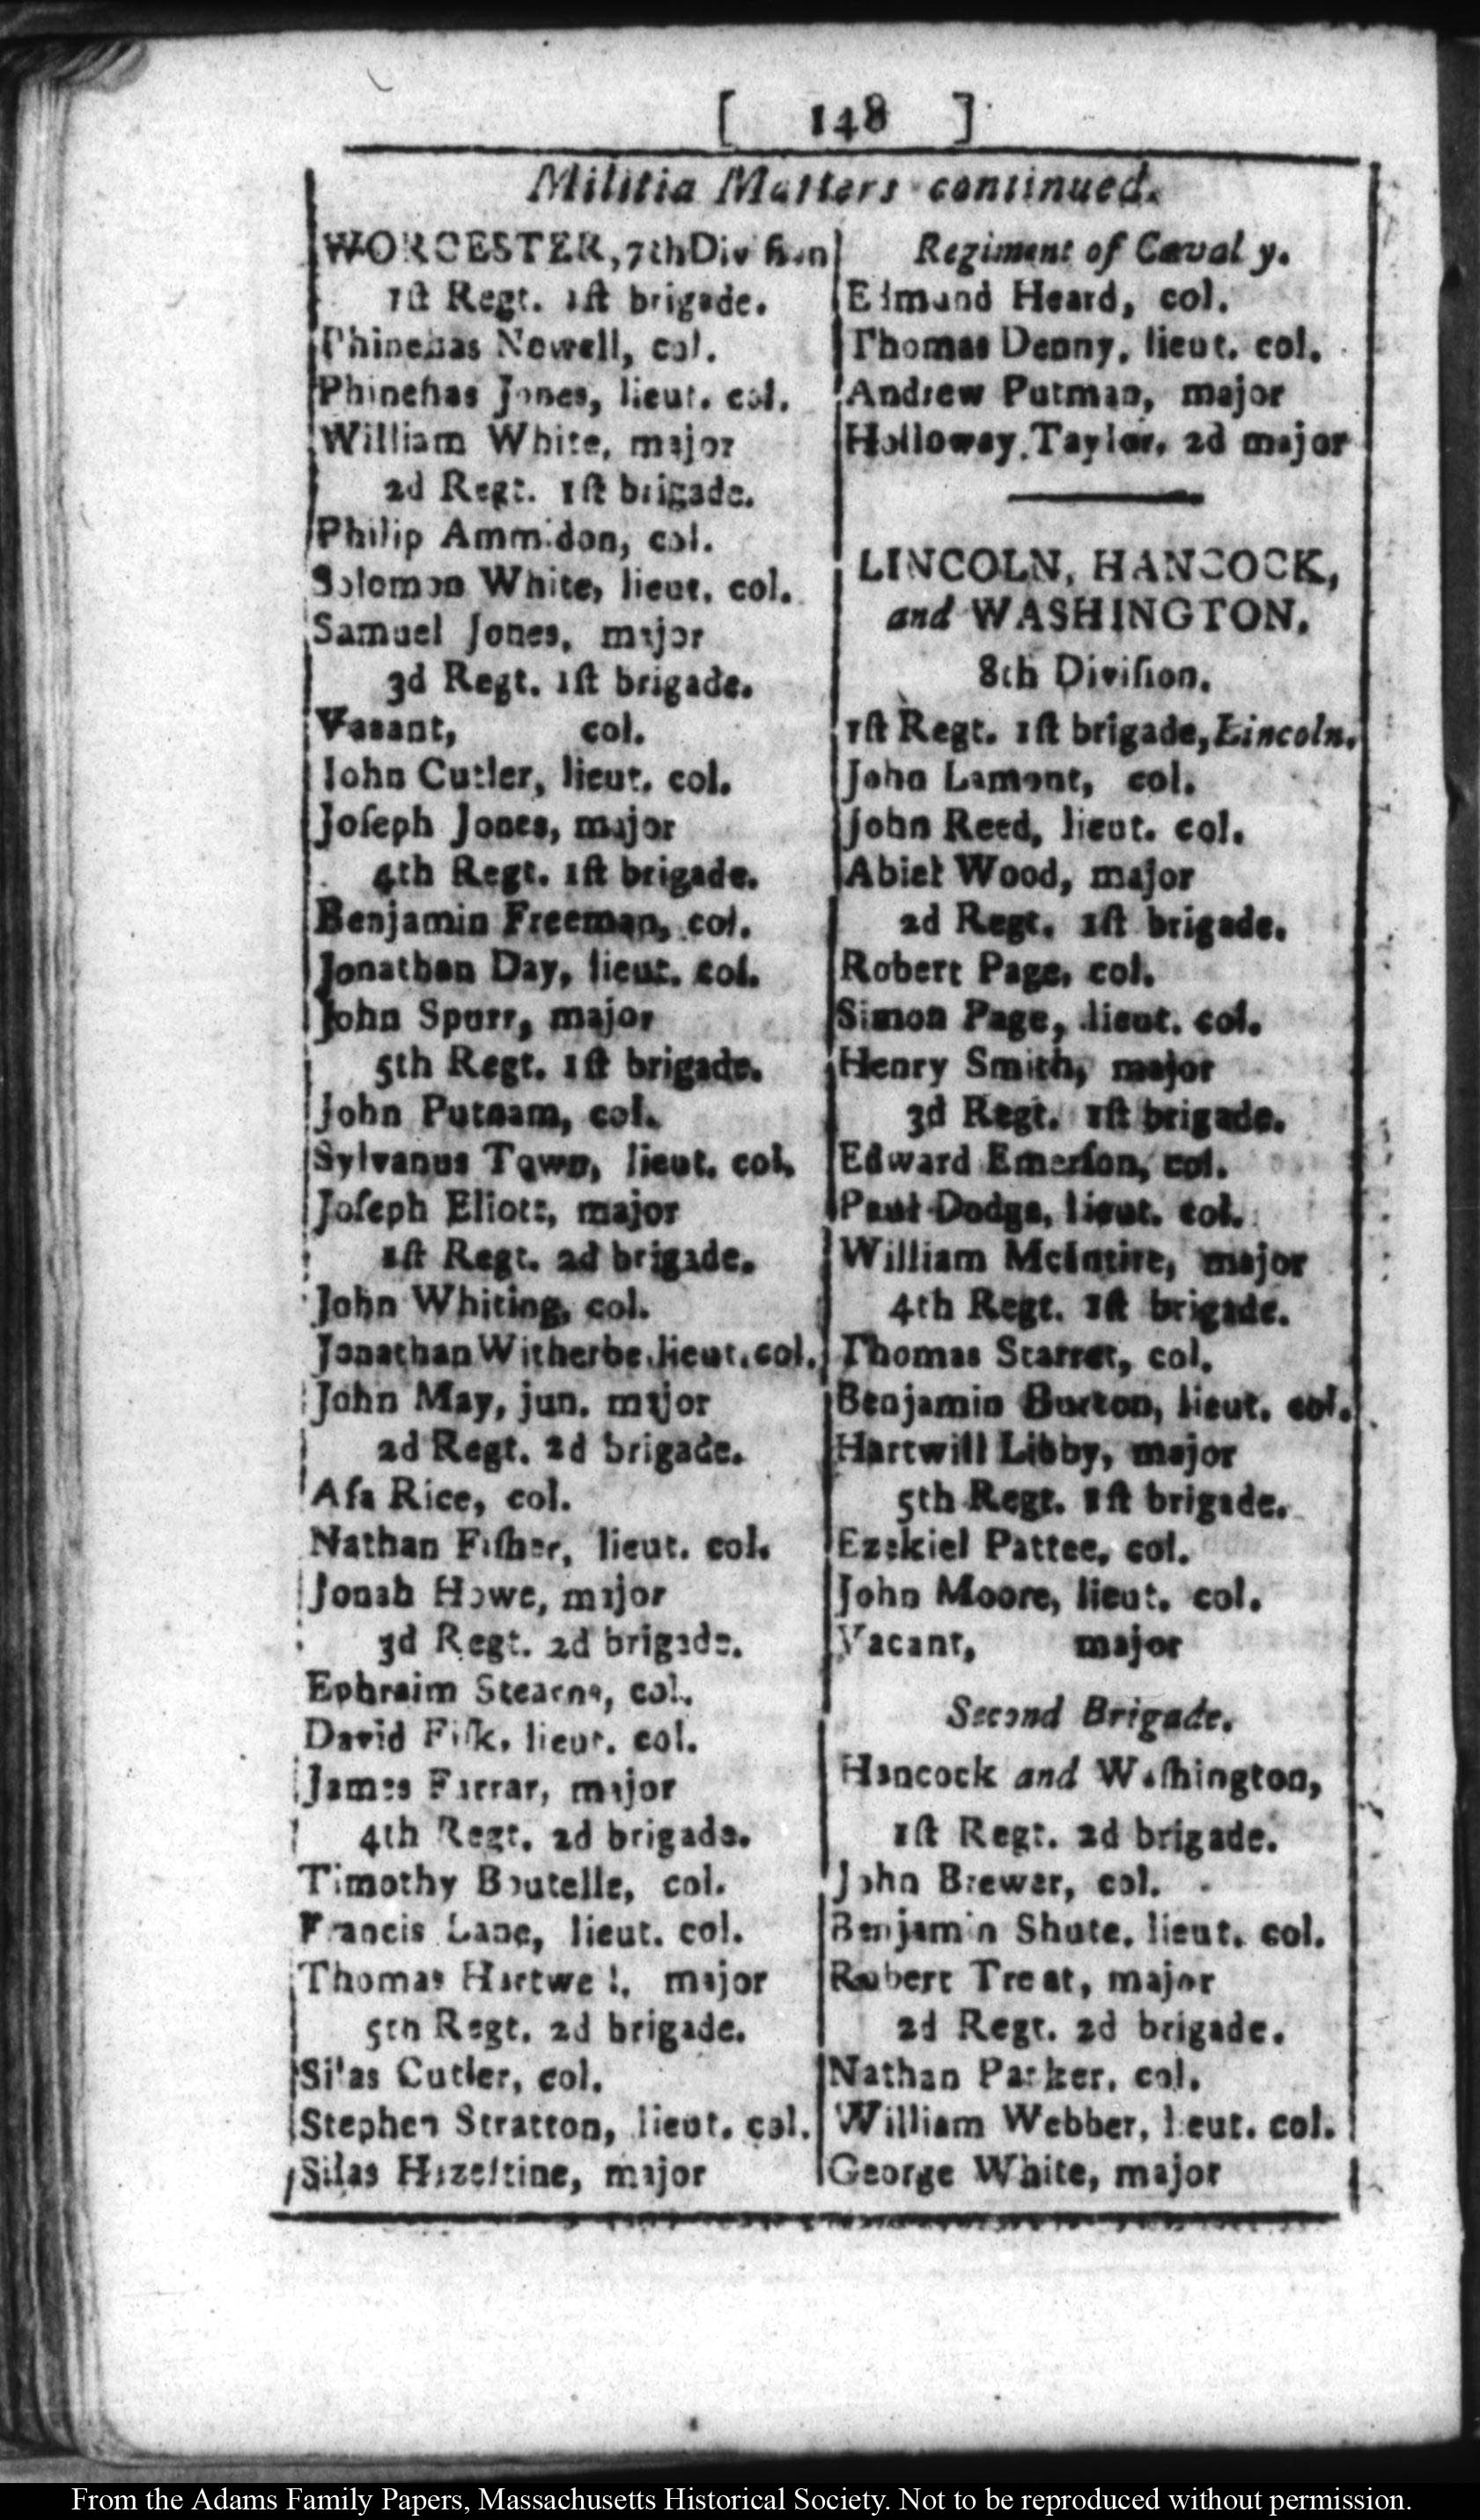 [ 148 ]
Militia Matters continued.
WORCESTER, 7th Division
1ſt Regt. 1ſt brigade.
Phinehas Nowell, col.
Phinehas Jones, lieut. col.
William White, major
2d Regt. 1ſt brigade.
Philip Ammidon, col.
Solomon White, lieut. col.
Samuel Jones, major
3d Regt. 1ſt brigade.
Vacant, col.
John Cutler, lieut. col.
Joſeph Jones, major
4th Regt. 1ſt brigade.
Benjamin Freeman, col.
Jonathan Day, lieut. col.
John Spurr, major
5th Regt. 1ſt brigade.
John Putnam, col.
Sylvanus Town, lieut. col.
Joſeph Eliott, major
1ſt Regt. 2d brigade.
John Whiting, col.
Jonathan Witherbe, lieut. col.
John May, jun. major
2d Regt. 2d brigade.
Aſa Rice, col.
Nathan Fiſher, lieut. col.
Jonah Howe, major
3d Regt. 2d brigade.
Ephraim Stearns, col.
David Fiſk, lieut. col.
James Farrar, major
4th Regt. 2d brigade.
Timothy Boutelle, col.
Francis Lane, lieut. col.
Thomas Hartwell, major
5th Regt. 2d brigade.
Silas Cutler, col.
Stephen Stratton, lieut. col.
Silas Hazeltine, major
Regiment of Cavalry.
Edmund Heard, col.
Thomas Denny, lieut. col.
Andrew Putman, major
Holloway Taylor, 2d major
LINCOLN, HANCOCK,
and WASHINGTON.
8th Diviſion.
1ſt Regt. 1ſt brigade, Lincoln.
John Lamont, col.
John Reed, lieut. col.
Abiel Wood, major
2d Regt. 1ſt brigade.
Robert Page, col.
Simon Page, lieut. col.
Henry Smith, major
3d Regt. 1ſt brigade.
Edward Emerſon, col.
Paul Dodge, lieut. col.
William McIntire, major
4th Regt. 1ſt brigade.
Thomas Starret, col.
Benjamin Burton, lieut. col.
Hartwill Libby, major
5th Regt. 1ſt brigade.
Ezekiel Pattee, col.
John Moore, lieut. col.
Vacant, major
Second Brigade.
Hancock and Waſhington,
1ſt Regt. 2d brigade.
John Brewer, col.
Benjamin Shute, lieut. col.
Robert Treat, major
2d Regt. 2d brigade.
Nathan Parker, col.
William Webber, lieut. col.
George White, major
From the Adams Family Papers, Massachusetts Historical Society. Not to be reproduced without permission.